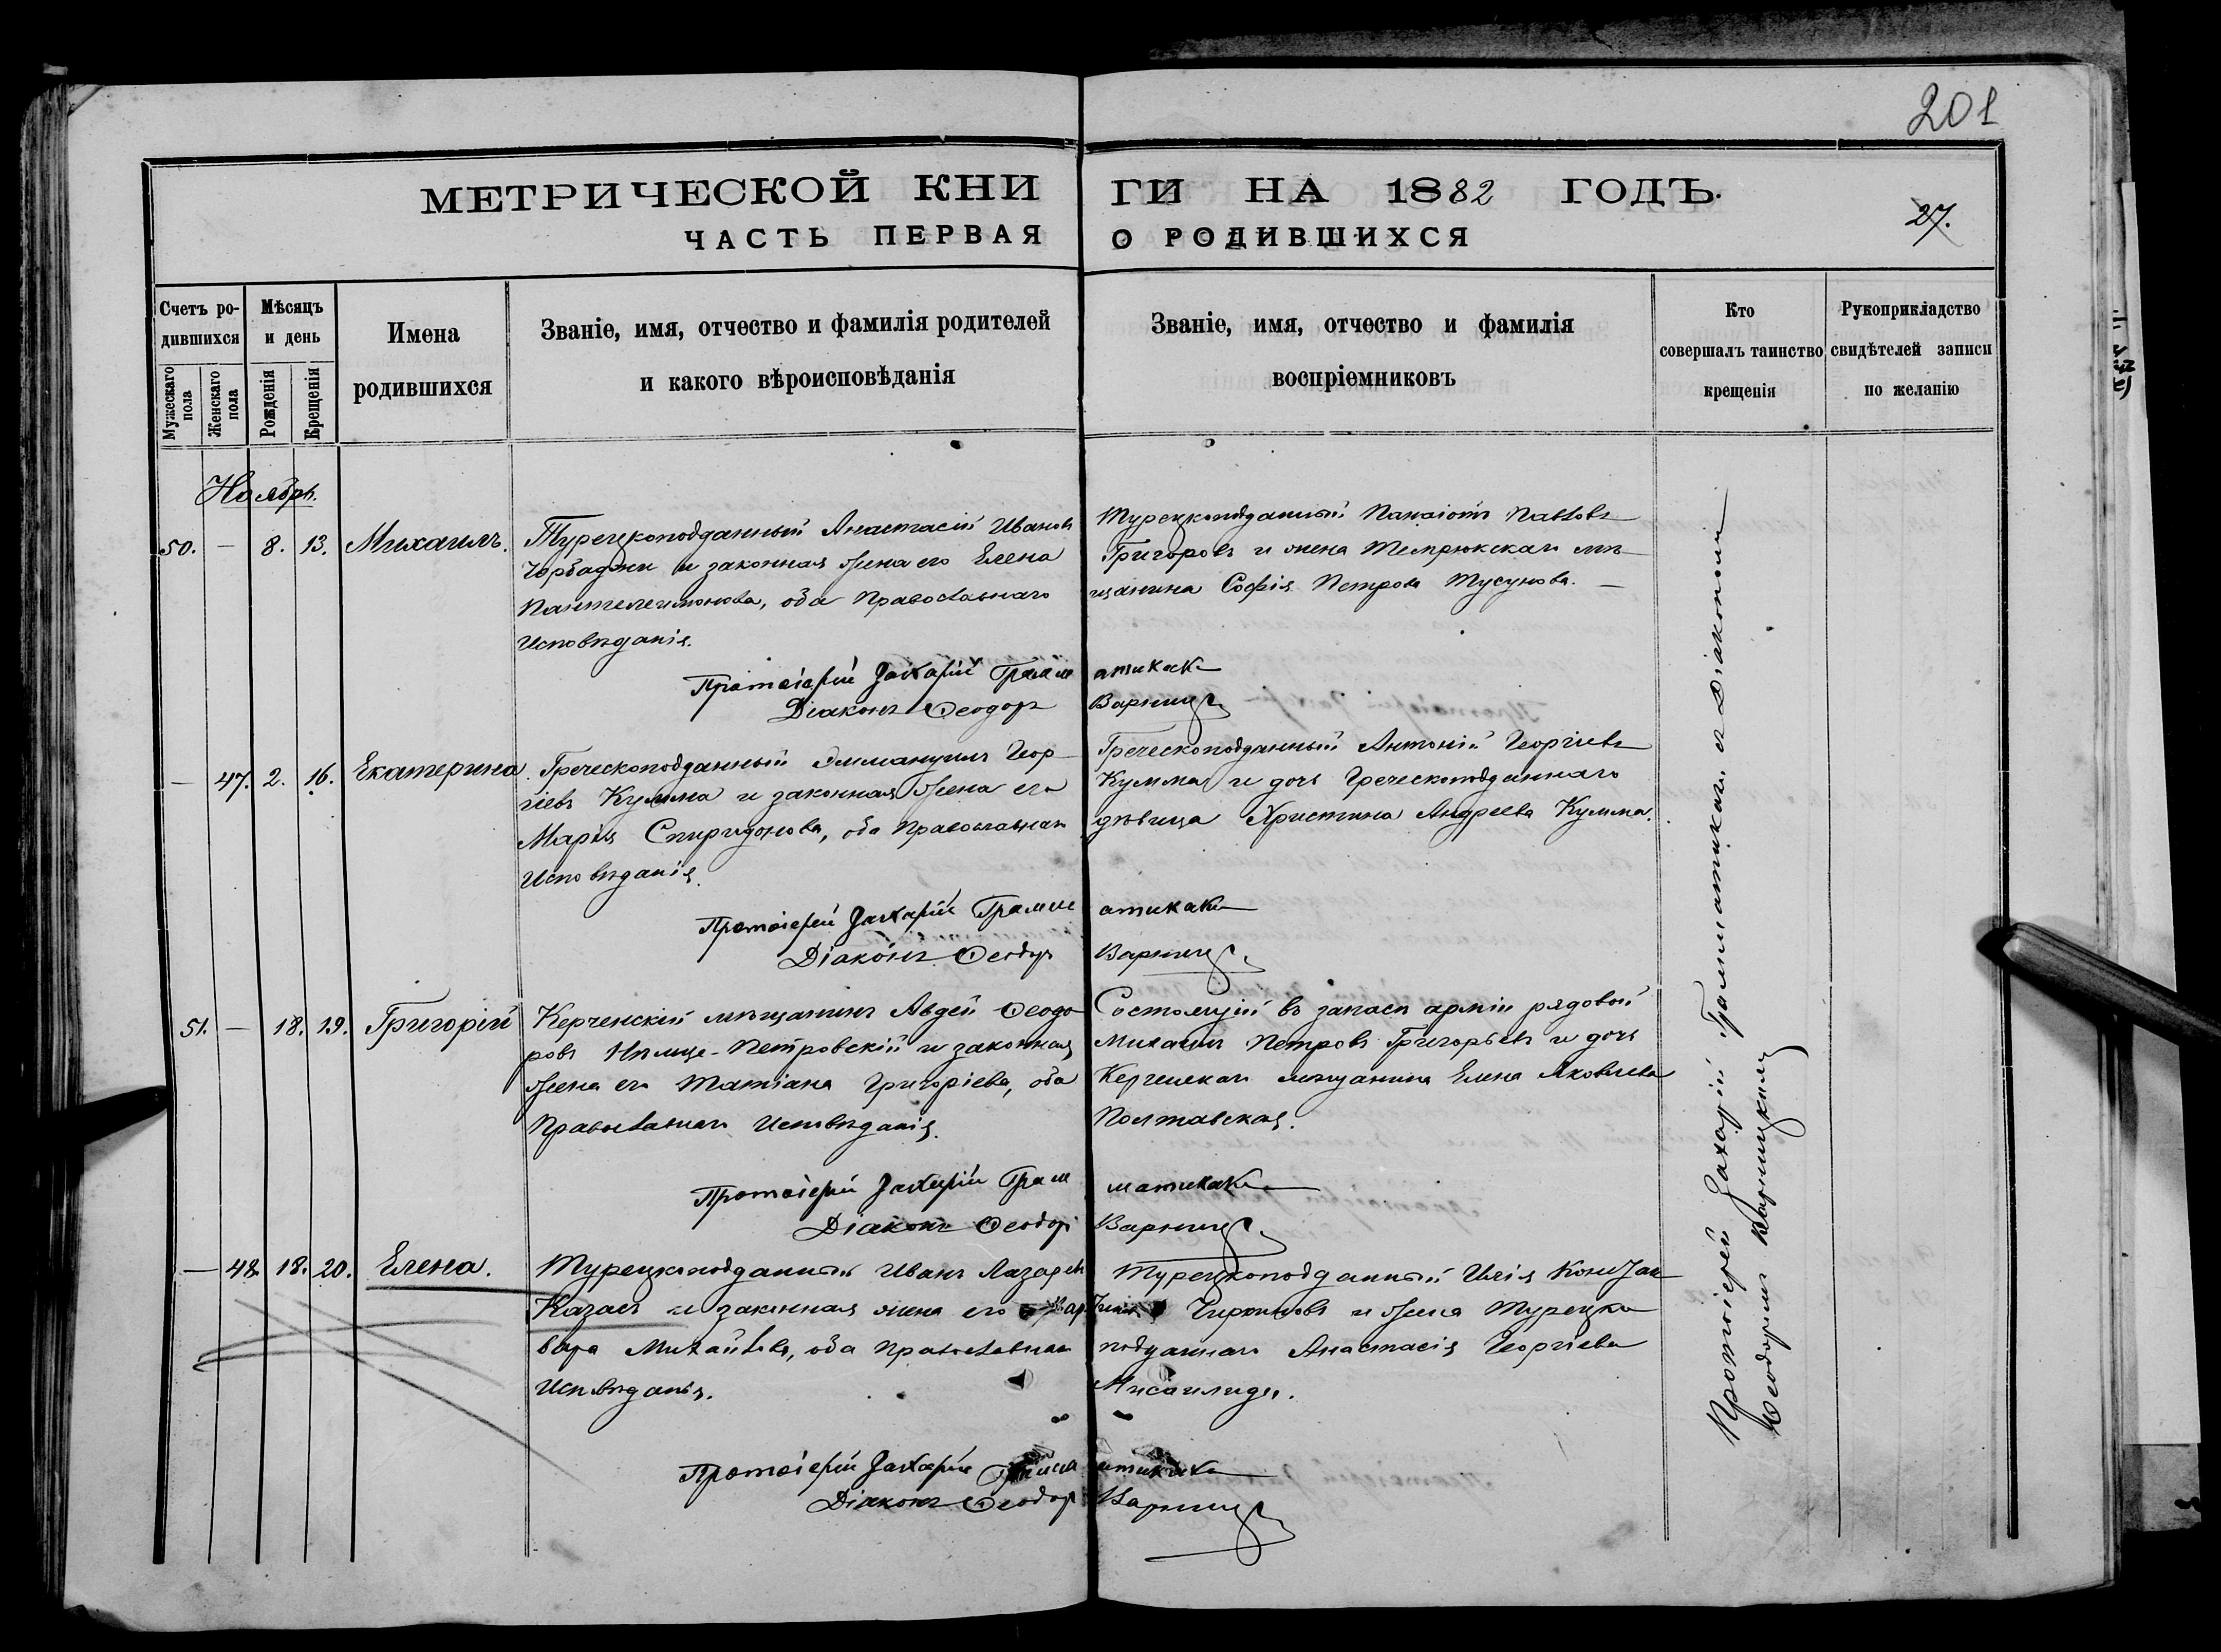 201
МЕТРИЧЕСКОЙ КНИ ГИ НА 1882 ГОДЪ.
ЧАСТЬ ПЕРВАЯ О РОДИВШИХСЯ
27.
Счетъ родившихся
Мужескаго пола
Женскаго пола
Мѣсяцъ и день
Рожденія
Крещенія
Имена родившихся
Званіе, имя, отчество и фамилія родителей
и какого вѣроисповѣданія
Званіе, имя, отчество и фамилія
воспріемниковъ
Кто
совершалъ таинство
крещенія
Рукоприкладство
свидѣтелей записи
по желанію
Ноябрь.
50. — 8. 13. Михаилъ.
Турецкоподданный Анастасій Ивановъ
Чорбаджи и законная жена его Елена
Пантелеимонова, оба Православнаго
Исповѣданія.
Турецкоподданный Панаіотъ Павловъ
Григоровъ и жена Темрюкскаго мѣ-
щанина Софія Петрова Тусунова. —
Протоіерей Захарій Грамматикаки
Діаконъ Ѳеодоръ Варниц
— 47. 2. 16. Екатерина.
Греческоподданный Эммануилъ Геор-
гіевъ Кулима и законная жена его
Марія Спиридонова, оба Православнаго
Исповѣданія.
Греческоподданный Антоній Георгіевъ
Кулима и дочь Греческоподданнаго
дѣвица Христина Андреева Кулима.
Протоіерей Захарій Грамматикаки
Діаконъ Ѳеодоръ Варниц
51. — 18. 19. Григорій
Керченскій мѣщанинъ Авдей Ѳеодо-
ровъ Нѣмце-Петровскій и законная
жена его Татіана Григоріева, оба
Православнаго Исповѣданія.
Состоящій въ запасѣ арміи рядовой
Михаилъ Петровъ Григорьевъ и дочь
Керченскаго мѣщанина Елена Яковлева
Полтавская.
Протоіерей Захарій Грамматикаки
Діаконъ Ѳеодоръ Варниц
— 48. 18. 20. Елена.
Турецкоподданный Иванъ Лазаревъ
Казасъ и законная жена его Вар-
вара Михайлова, оба Православнаго
Исповѣданія.
Турецкоподданный Илія
и жена Турецко
подданнаго Анастасія Георгіева
Мисаилиди.
Протоіерей Захарій Грамматикаки
Діаконъ Ѳеодоръ Варниц
Протоіерей Захарій Грамматикаки съ Діакономъ
Ѳеодоромъ Варницкимъ